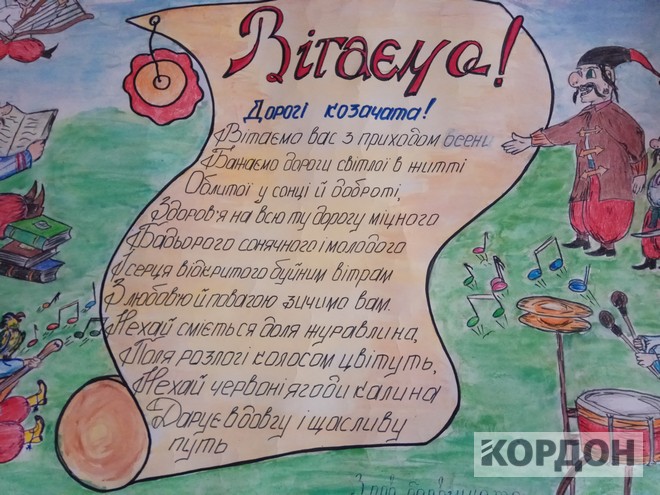 Вітаємо!
Дорогі козачата!
Вітаємо вас з приходом осени
Бажаємо дороги світлої в житті
Облитої у сонці й доброті,
Здоров'я на всю ту дорогу міцного
Бадьорого сонячного і молодого
І серця відкритого буйним вітрам
З любов'ю й повагою зичимо вам.
Нехай сміється доля журавлина,
Поля розлогі колосом цвітуть,
Нехай червоні ягоди калина
Дарує в довгу і щасливу
путь
КОРДОН